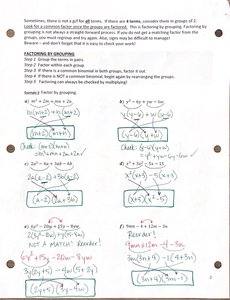 Sometimes, there is not a gcf for all terms. If there are 4 terms, consider them in groups of 2.
Look for a common factor once the groups are factored. This is factoring by grouping. Factoring by
grouping is not always a straight-forward process. If you do not get a matching factor from the
groups, you must regroup and try again. Also, signs may be difficult to manage!
Beware – and don't forget that it is easy to check your work!
FACTORING BY GROUPING
Step 1 Group the terms in pairs.
Step 2 Factor within each group
Step 3 If there is a common binomial in both groups, factor it out
Step 4 If there is NOT a common binomial, begin again by rearranging the groups.
Step 5 Factoring can always be checked by multiplying!
Example 3 Factor by grouping
a) m² + 2m + mn + 2n
b) y² – 6y + yw – 6w
m(m+2) + n(m+2)
y(y-6) + w(y-6)
(m+2)(m+n)
(y-6)(y+w)
Check: (m+2)(m+n)
= m²+mn+2m+2n ✓
Check: (y-6)(y+w)
= y²+yw-6y-6w ✓
c) 2a² – 4a + 3ab – 6b
d) x³ + 5x² – 5x – 25
2a(a-2) + 3b(a-2)
x²(x+5) -5(x+5)
(a-2)(2a+3b)
(x+5)(x²-5)
e) 6y² – 20w + 15y – 8yw
f) 9mn – 4 + 12m – 3n
2(3y²-10w) + y(15-8w)
Reorder!
NOT A MATCH! Reorder!
9mn+12m -4-3n
6y²+15y-20w-8yw
3m(3n+4) -1(4+3n)
3y(2y+5) -4w(5+2y)
(3n+4)(3m-1)
(2y+5)(3y-4w)
2